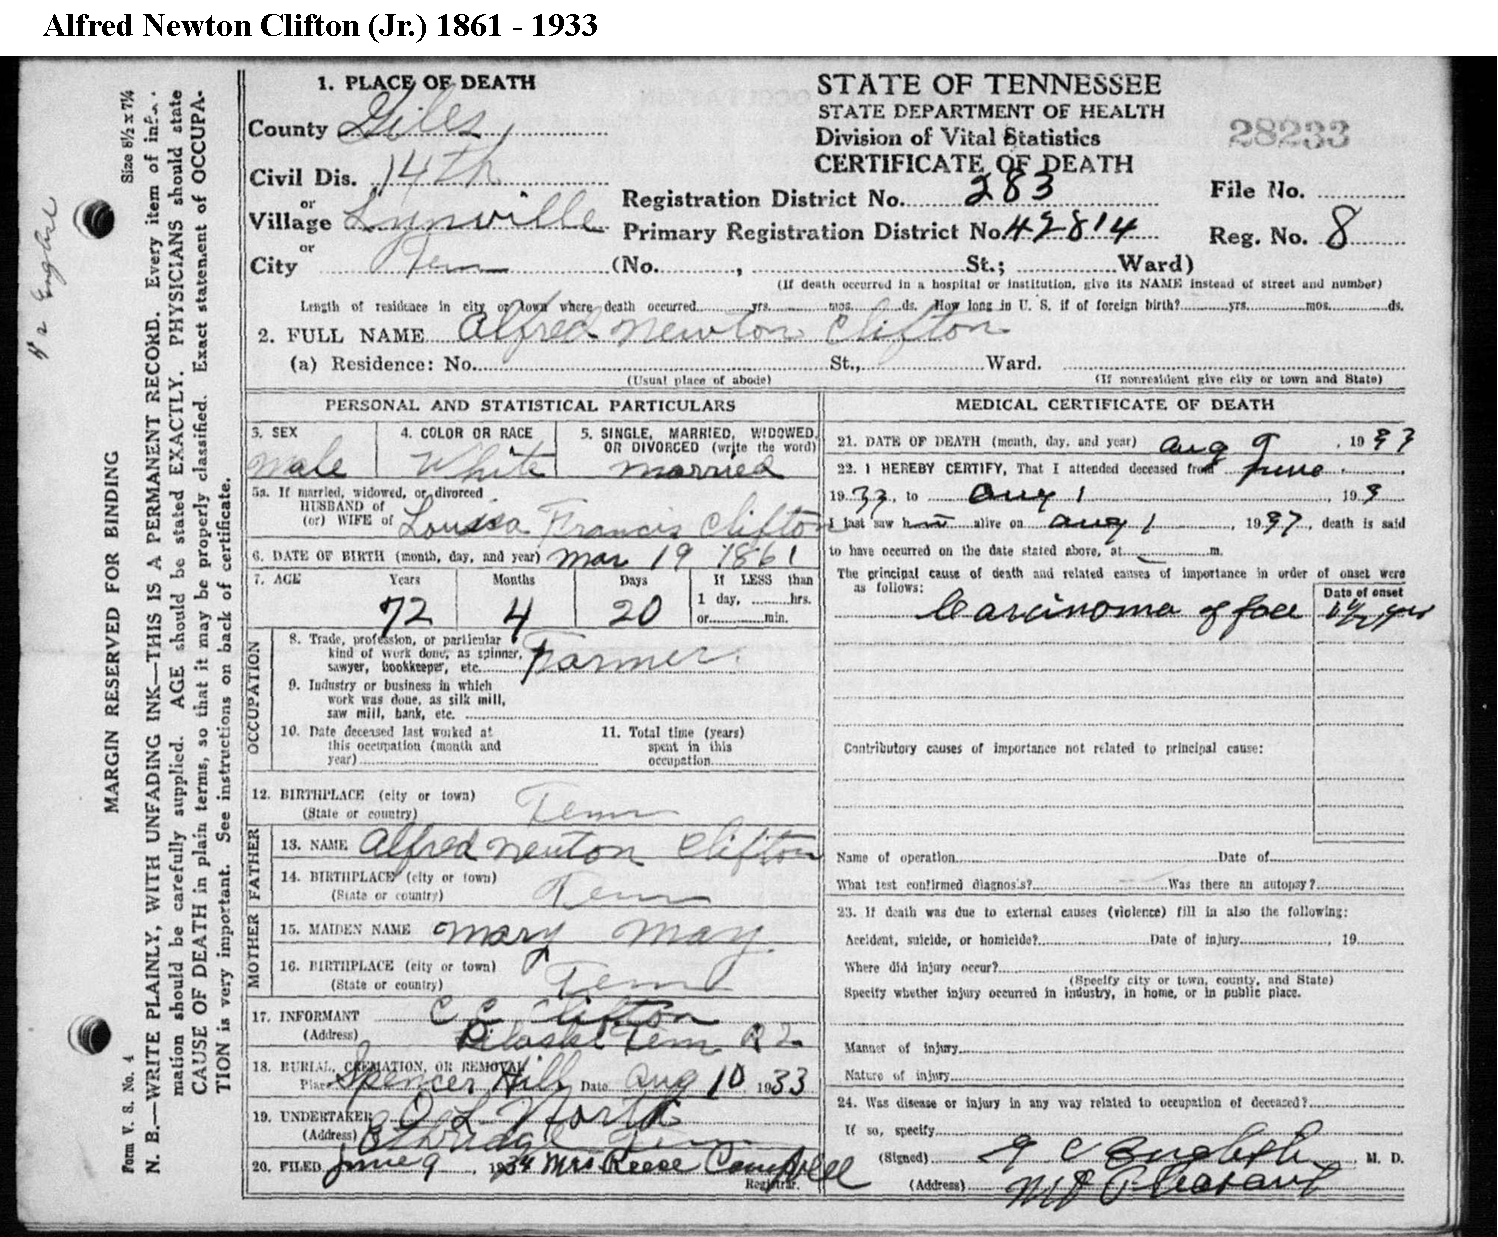 Alfred Newton Clifton (Jr.) 1861 - 1933
Size 8½ x 7¼
MARGIN RESERVED FOR BINDING
N. B.—WRITE PLAINLY, WITH UNFADING INK—THIS IS A PERMANENT RECORD. Every item of infor-
mation should be carefully supplied. AGE should be stated EXACTLY. PHYSICIANS should state
CAUSE OF DEATH in plain terms, so that it may be properly classified. Exact statement of OCCUPA-
TION is very important. See instructions on back of certificate.
Form V. S. No. 4
1. PLACE OF DEATH
County Giles
Civil Dis. 14th
or
Village Lynnville
or
City Tenn (No. , St.; Ward)
STATE OF TENNESSEE
STATE DEPARTMENT OF HEALTH
Division of Vital Statistics
CERTIFICATE OF DEATH
28233
Registration District No. 283
File No.
Primary Registration District No. 42814
Reg. No. 8
(If death occurred in a hospital or institution, give its NAME instead of street and number)
Length of residence in city or town where death occurred yrs. mos. ds. How long in U. S. if of foreign birth? yrs. mos. ds.
2. FULL NAME Alfred Newton Clifton
(a) Residence: No. St., Ward.
(Usual place of abode) (If nonresident give city or town and State)
PERSONAL AND STATISTICAL PARTICULARS
3. SEX male
4. COLOR OR RACE White
5. SINGLE, MARRIED, WIDOWED, OR DIVORCED (write the word) married
5a. If married, widowed, or divorced
HUSBAND of
(or) WIFE of Louisa Francis Clifton
6. DATE OF BIRTH (month, day, and year) Mar 19 1861
7. AGE Years Months Days If LESS than
72 4 20 1 day, hrs.
or min.
OCCUPATION
8. Trade, profession, or particular
kind of work done, as spinner,
sawyer, bookkeeper, etc. Farmer.
9. Industry or business in which
work was done, as silk mill,
saw mill, bank, etc.
10. Date deceased last worked at
this occupation (month and
year)
11. Total time (years)
spent in this
occupation
12. BIRTHPLACE (city or town)
(State or country) Tenn
FATHER
13. NAME Alfred Newton Clifton
14. BIRTHPLACE (city or town)
(State or country) Tenn
MOTHER
15. MAIDEN NAME Mary May.
16. BIRTHPLACE (city or town)
(State or country) Tenn
17. INFORMANT C C Clifton
(Address) Pulaski Tenn R 2
18. BURIAL, CREMATION, OR REMOVAL
Place Spencer Hill Date Aug 10 1933
19. UNDERTAKER
(Address) Ethridge Tenn
20. FILED June 9, 1934 Mrs Reese Campbell
Registrar.
MEDICAL CERTIFICATE OF DEATH
21. DATE OF DEATH (month, day, and year) Aug 9, 1933
22. I HEREBY CERTIFY, That I attended deceased from June
1933, to Aug 1, 193
I last saw him alive on Aug 1, 1933, death is said
to have occurred on the date stated above, at m.
The principal cause of death and related causes of importance in order of onset were
as follows:
Date of onset
Carcinoma of face
Contributory causes of importance not related to principal cause:
Name of operation Date of
What test confirmed diagnosis? Was there an autopsy?
23. If death was due to external causes (violence) fill in also the following:
Accident, suicide, or homicide? Date of injury , 19
Where did injury occur?
(Specify city or town, county, and State)
Specify whether injury occurred in industry, in home, or in public place.
Manner of injury
Nature of injury
24. Was disease or injury in any way related to occupation of deceased?
If so, specify
(Signed) G C English M. D.
(Address) Mt Pleasant